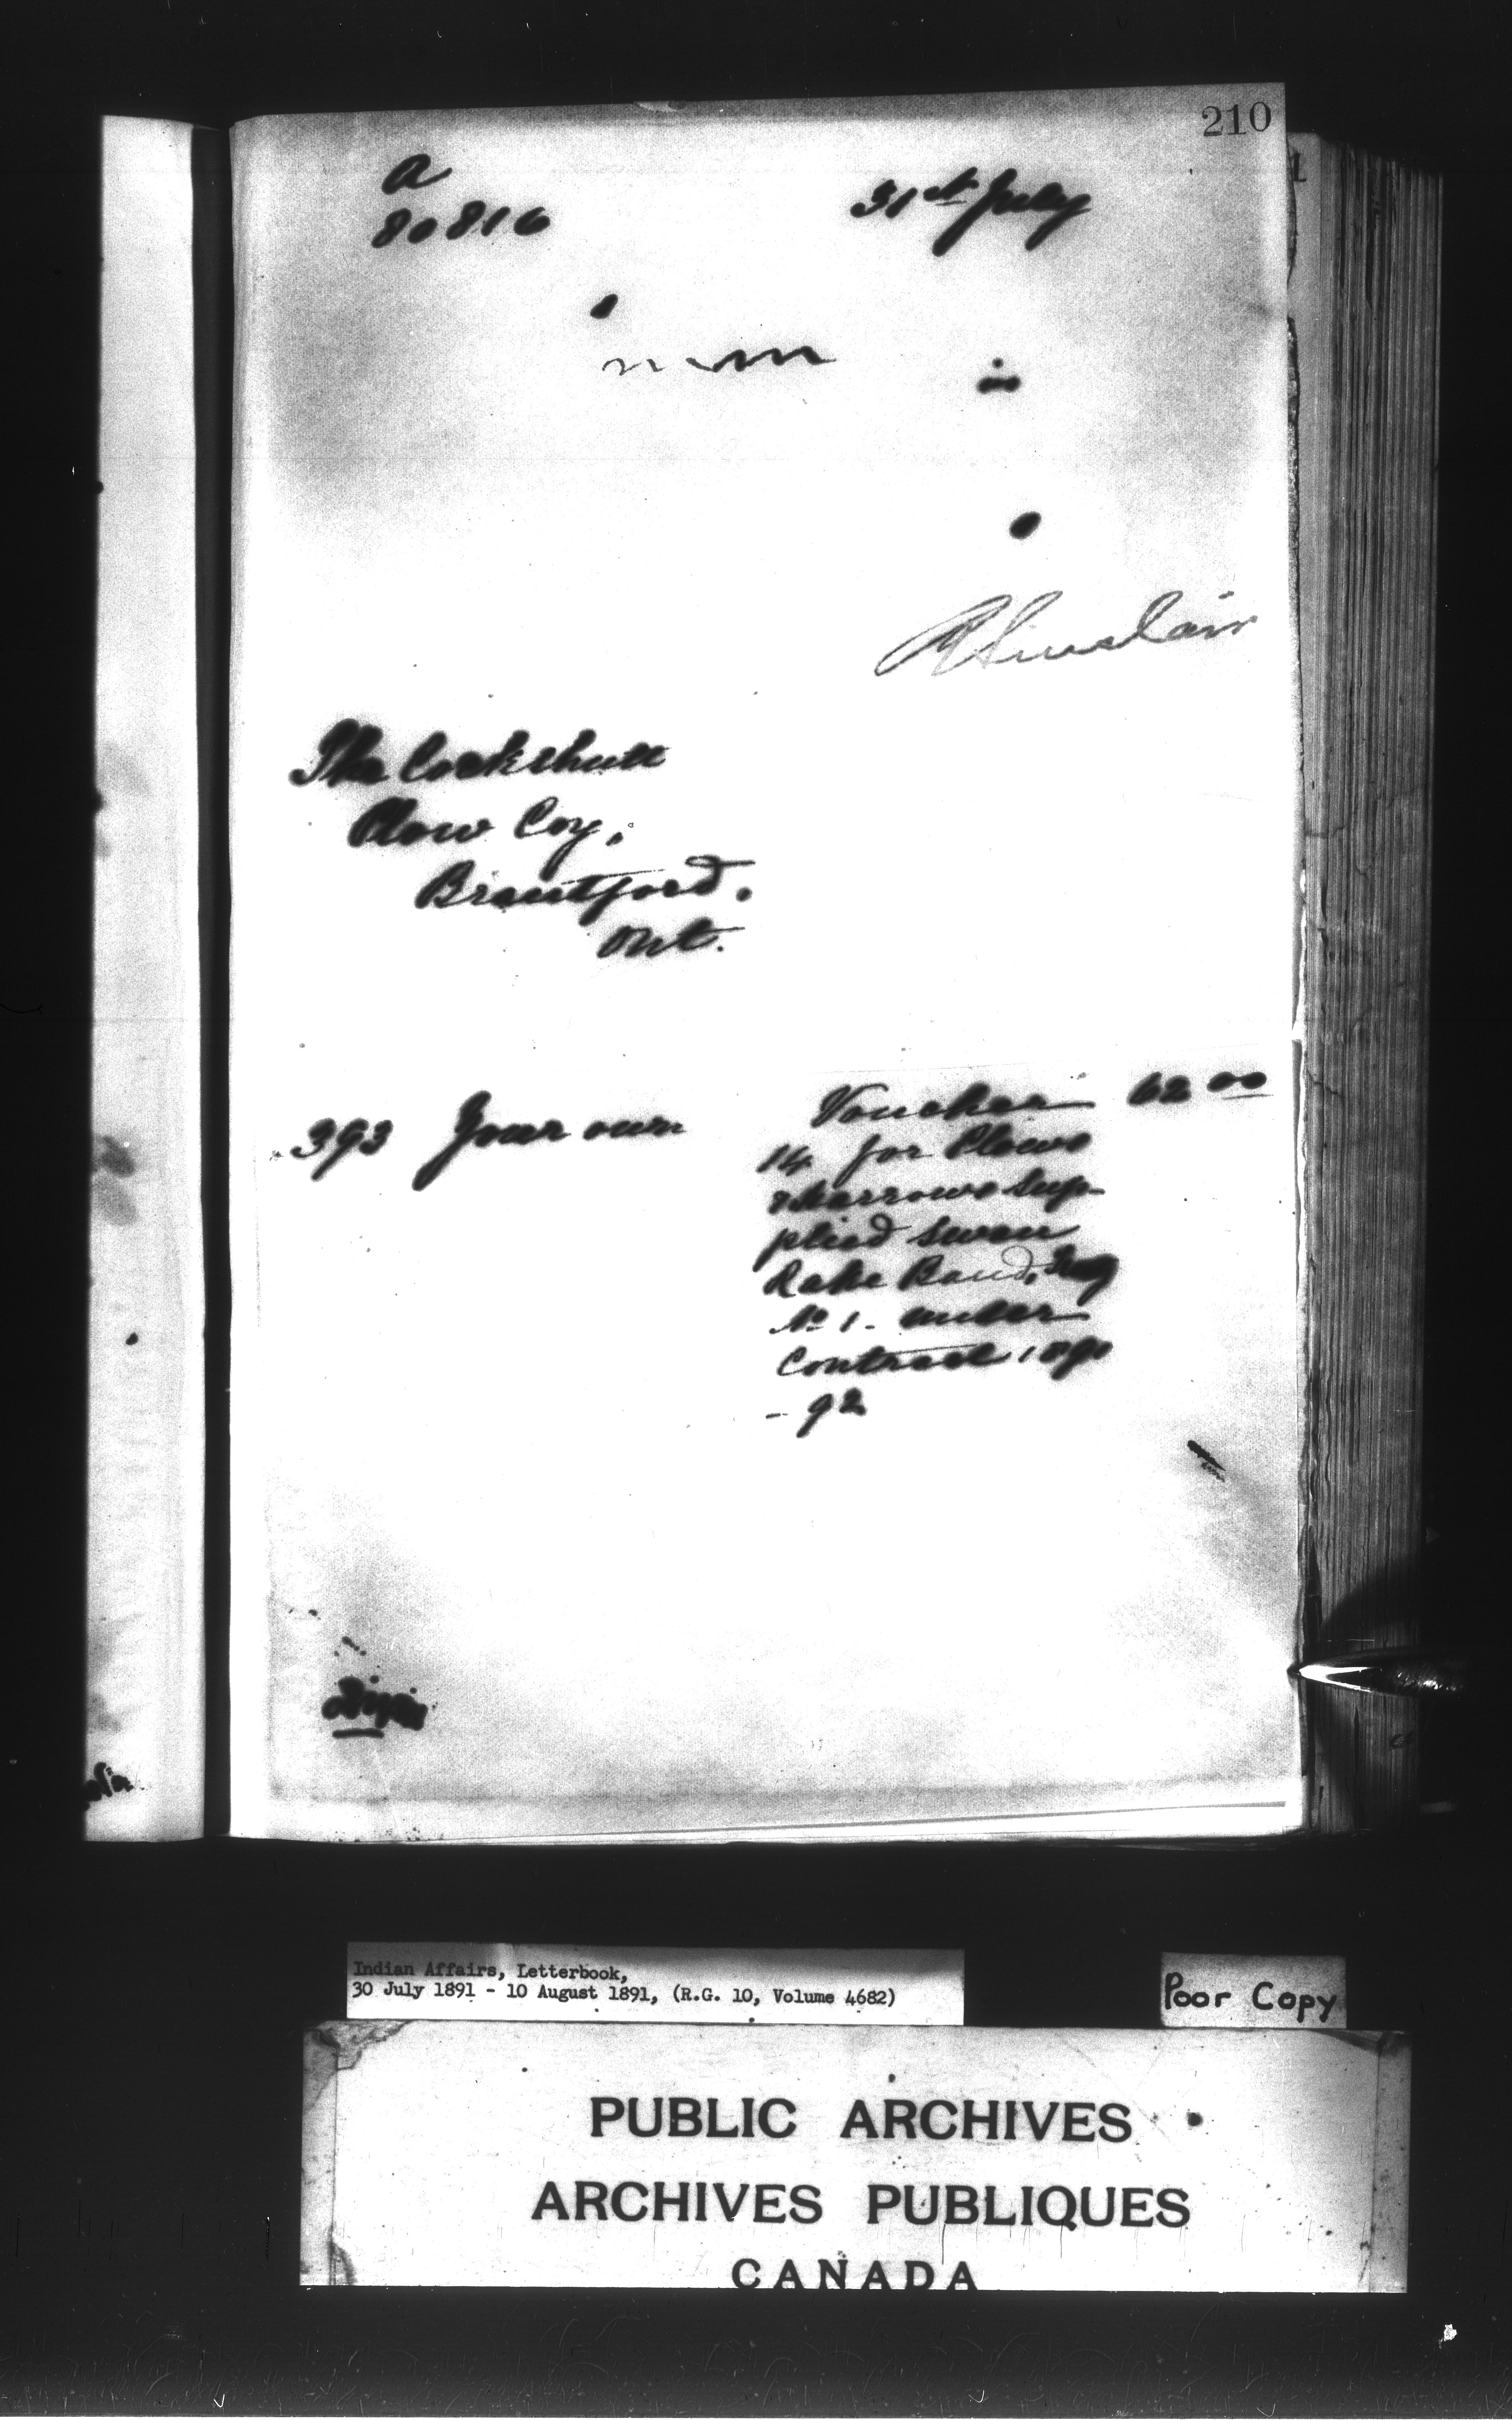 210
a
80816
31st July
R Sinclair
The Cockshutt
Plow Coy,
Brantford.
Ont.
393 Your own
Voucher 62 00
14 for Plows
& harrows sup-
plied Swan
Lake Band,
No 1. under
Contract 1890
- 92
Indian Affairs, Letterbook,
30 July 1891 - 10 August 1891, (R.G. 10, Volume 4682)
Poor Copy
PUBLIC ARCHIVES
ARCHIVES PUBLIQUES
CANADA